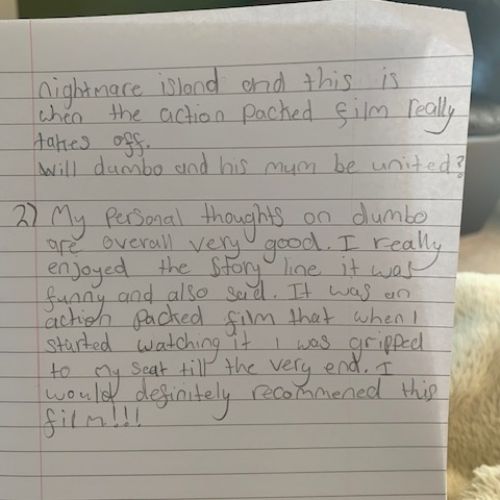 nightmare island and this is
when the action packed film really
takes off.
will dumbo and his mum be united?
2) My personal thoughts on dumbo
are overall very good. I really
enjoyed the story line it was
funny and also sad. It was an
action packed film that when I
started watching it I was gripped
to my seat till the very end. I
would definitely recommened this
film!!!